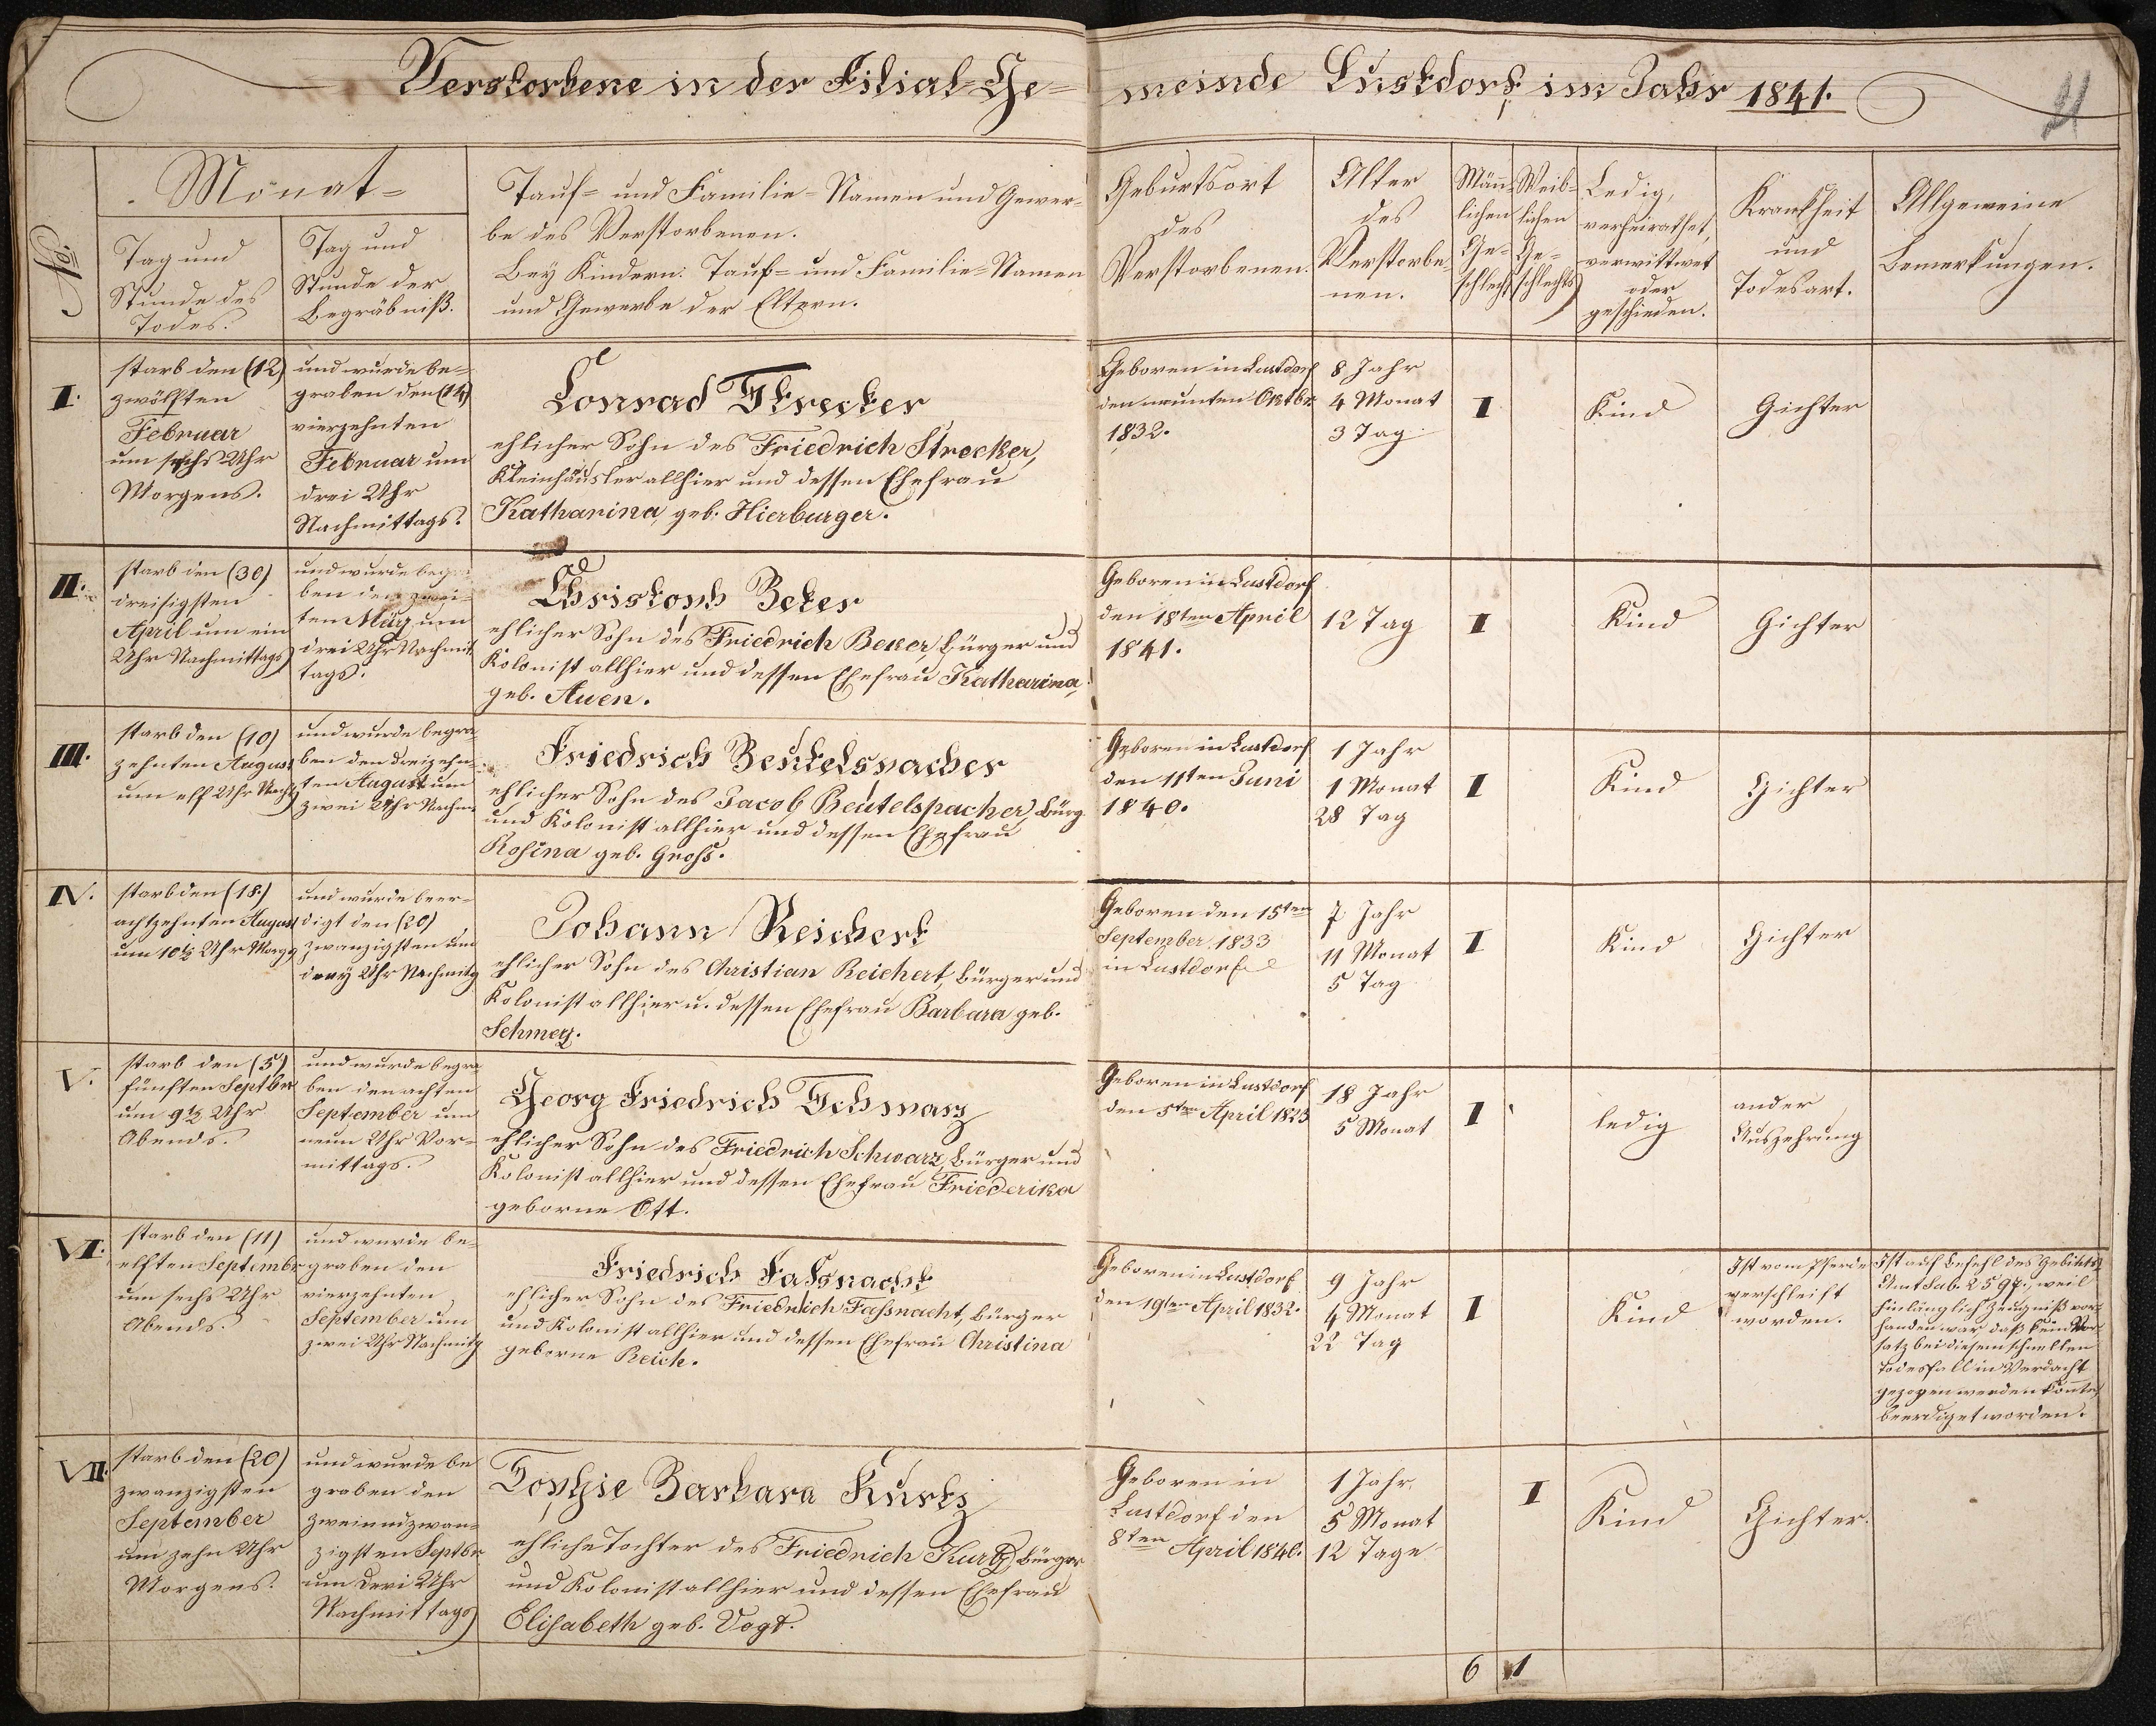 Verstorbene in der Filial-Ge=
meinde Lustdorf im Jahr 1841.
21
No
Monat=
Tag und
Stunde des
Todes.
Tag und
Stunde der
Begräbniß.
Tauf= und Familie=Namen und Gewer=
be des Verstorbenen.
Bey Kindern: Tauf= und Familie=Namen
und Gewerbe der Eltern.
Geburtsort
des
Verstorbenen.
Alter
des
Verstorbe=
nen.
Män̄=
lichen
Ge=
schlechts
Weib=
lichen
Ge=
schlechts
Ledig,
verheirathet,
verwittwet
oder
geschieden.
Krankheit
und
Todesart.
Allgemeine
Bemerkungen.
I.
starb den (12)
zwölften
Februar
um sechs Uhr
Morgens.
und wurde be=
graben den (14)
vierzehnten
Februar um
drei Uhr
Nachmittags.
Conrad Strecker
ehlicher Sohn des Friedrich Strecker,
Kleinhäusler allhier und dessen Ehefrau
Katharina, geb. Hierburger.
Geboren in Lustdorf
den neunten Oktbr
1832.
8 Jahr
4 Monat
3 Tag
I
Kind
Gichter
II.
starb den (30)
dreisigsten
April um ein
Uhr Nachmittags
und wurde begra-
ben den zwei-
ten May um
drei Uhr Nachmit
tags.
Christoph Beker
ehlicher Sohn des Friedrich Beker, Bürger und
Kolonist allhier und dessen Ehefrau Katharina,
geb. Auen.
Geboren in Lustdorf
den 18ten April
1841.
12 Tag
I
Kind
Gichter
III.
starb den (10)
zehnten August
um elf Uhr Nachts
und wurde begra-
ben den dreizehn-
ten August um
zwei Uhr Nachm.
Friedrich Beutelspacher
ehlicher Sohn des Jacob Beutelspacher, Bürg.
und Kolonist allhier und dessen Ehefrau
Rosina geb. Gross.
Geboren in Lustdorf
den 11ten Juni
1840.
1 Jahr
1 Monat
28 Tag
I
Kind
Gichter
IV.
starb den (18.)
achtzehnten August
um 10½ Uhr Morgs
und wurde beer-
digt den (20)
zwanzigsten um
drey Uhr Nachmitg
Johann Reichert
ehlicher Sohn des Christian Reichert, Bürger und
Kolonist allhier u. dessen Ehefrau Barbara geb.
Schmey.
Geboren den 15ten
September 1833
in Lustdorf
7 Jahr
11 Monat
5 Tag
I
Kind
Gichter
V.
starb den (5)
fünften Septbr
um 9½ Uhr
Abends.
und wurde begra-
ben den achten
September um
neun Uhr Vor-
mittags.
Georg Friedrich Schwarz
ehlicher Sohn des Friedrich Schwarz, Bürger und
Kolonist allhier und dessen Ehefrau Friederika
geborne Ott.
Geboren in Lustdorf
den 5ten April 1823
18 Jahr
5 Monat
I
ledig
an der
Auszehrung
VI.
starb den (11)
elften Septembr
um sechs Uhr
Abends.
und wurde be-
graben den
vierzehnten
September um
zwei Uhr Nachmitg
Friedrich Fassnacht
ehlicher Sohn des Friedrich Fassnacht, Bürger
und Kolonist allhier und dessen Ehefrau Christina
geborne Reich.
Geboren in Lustdorf
den 19ten April 1832.
9 Jahr
4 Monat
22 Tag
I
Kind
Ist vom Pferde
verschleift
worden.
Ist auf Befehl des Gebiets
Amt Sub. 2597., weil
hinlänglich Zeugniß vor-
handen war daß kein Vor-
satz bei diesem schnellen
Todesfall in Verdacht
gezogen werden konnte
beerdiget worden.
VII.
starb den (20)
zwanzigsten
September
um zehn Uhr
Morgens.
und wurde be
graben den
zweiundzwan-
zigsten Septbr
um drei Uhr
Nachmittags
Sophie Barbara Kurtz
ehliche Tochter des Friedrich Kurtz, Bürger
und Kolonist allhier und dessen Ehefrau
Elisabeth geb. Vogt.
Geboren in
Lustdorf den
8ten April 1840.
1 Jahr
5 Monat
12 Tage
I
Kind
Gichter.
6 1